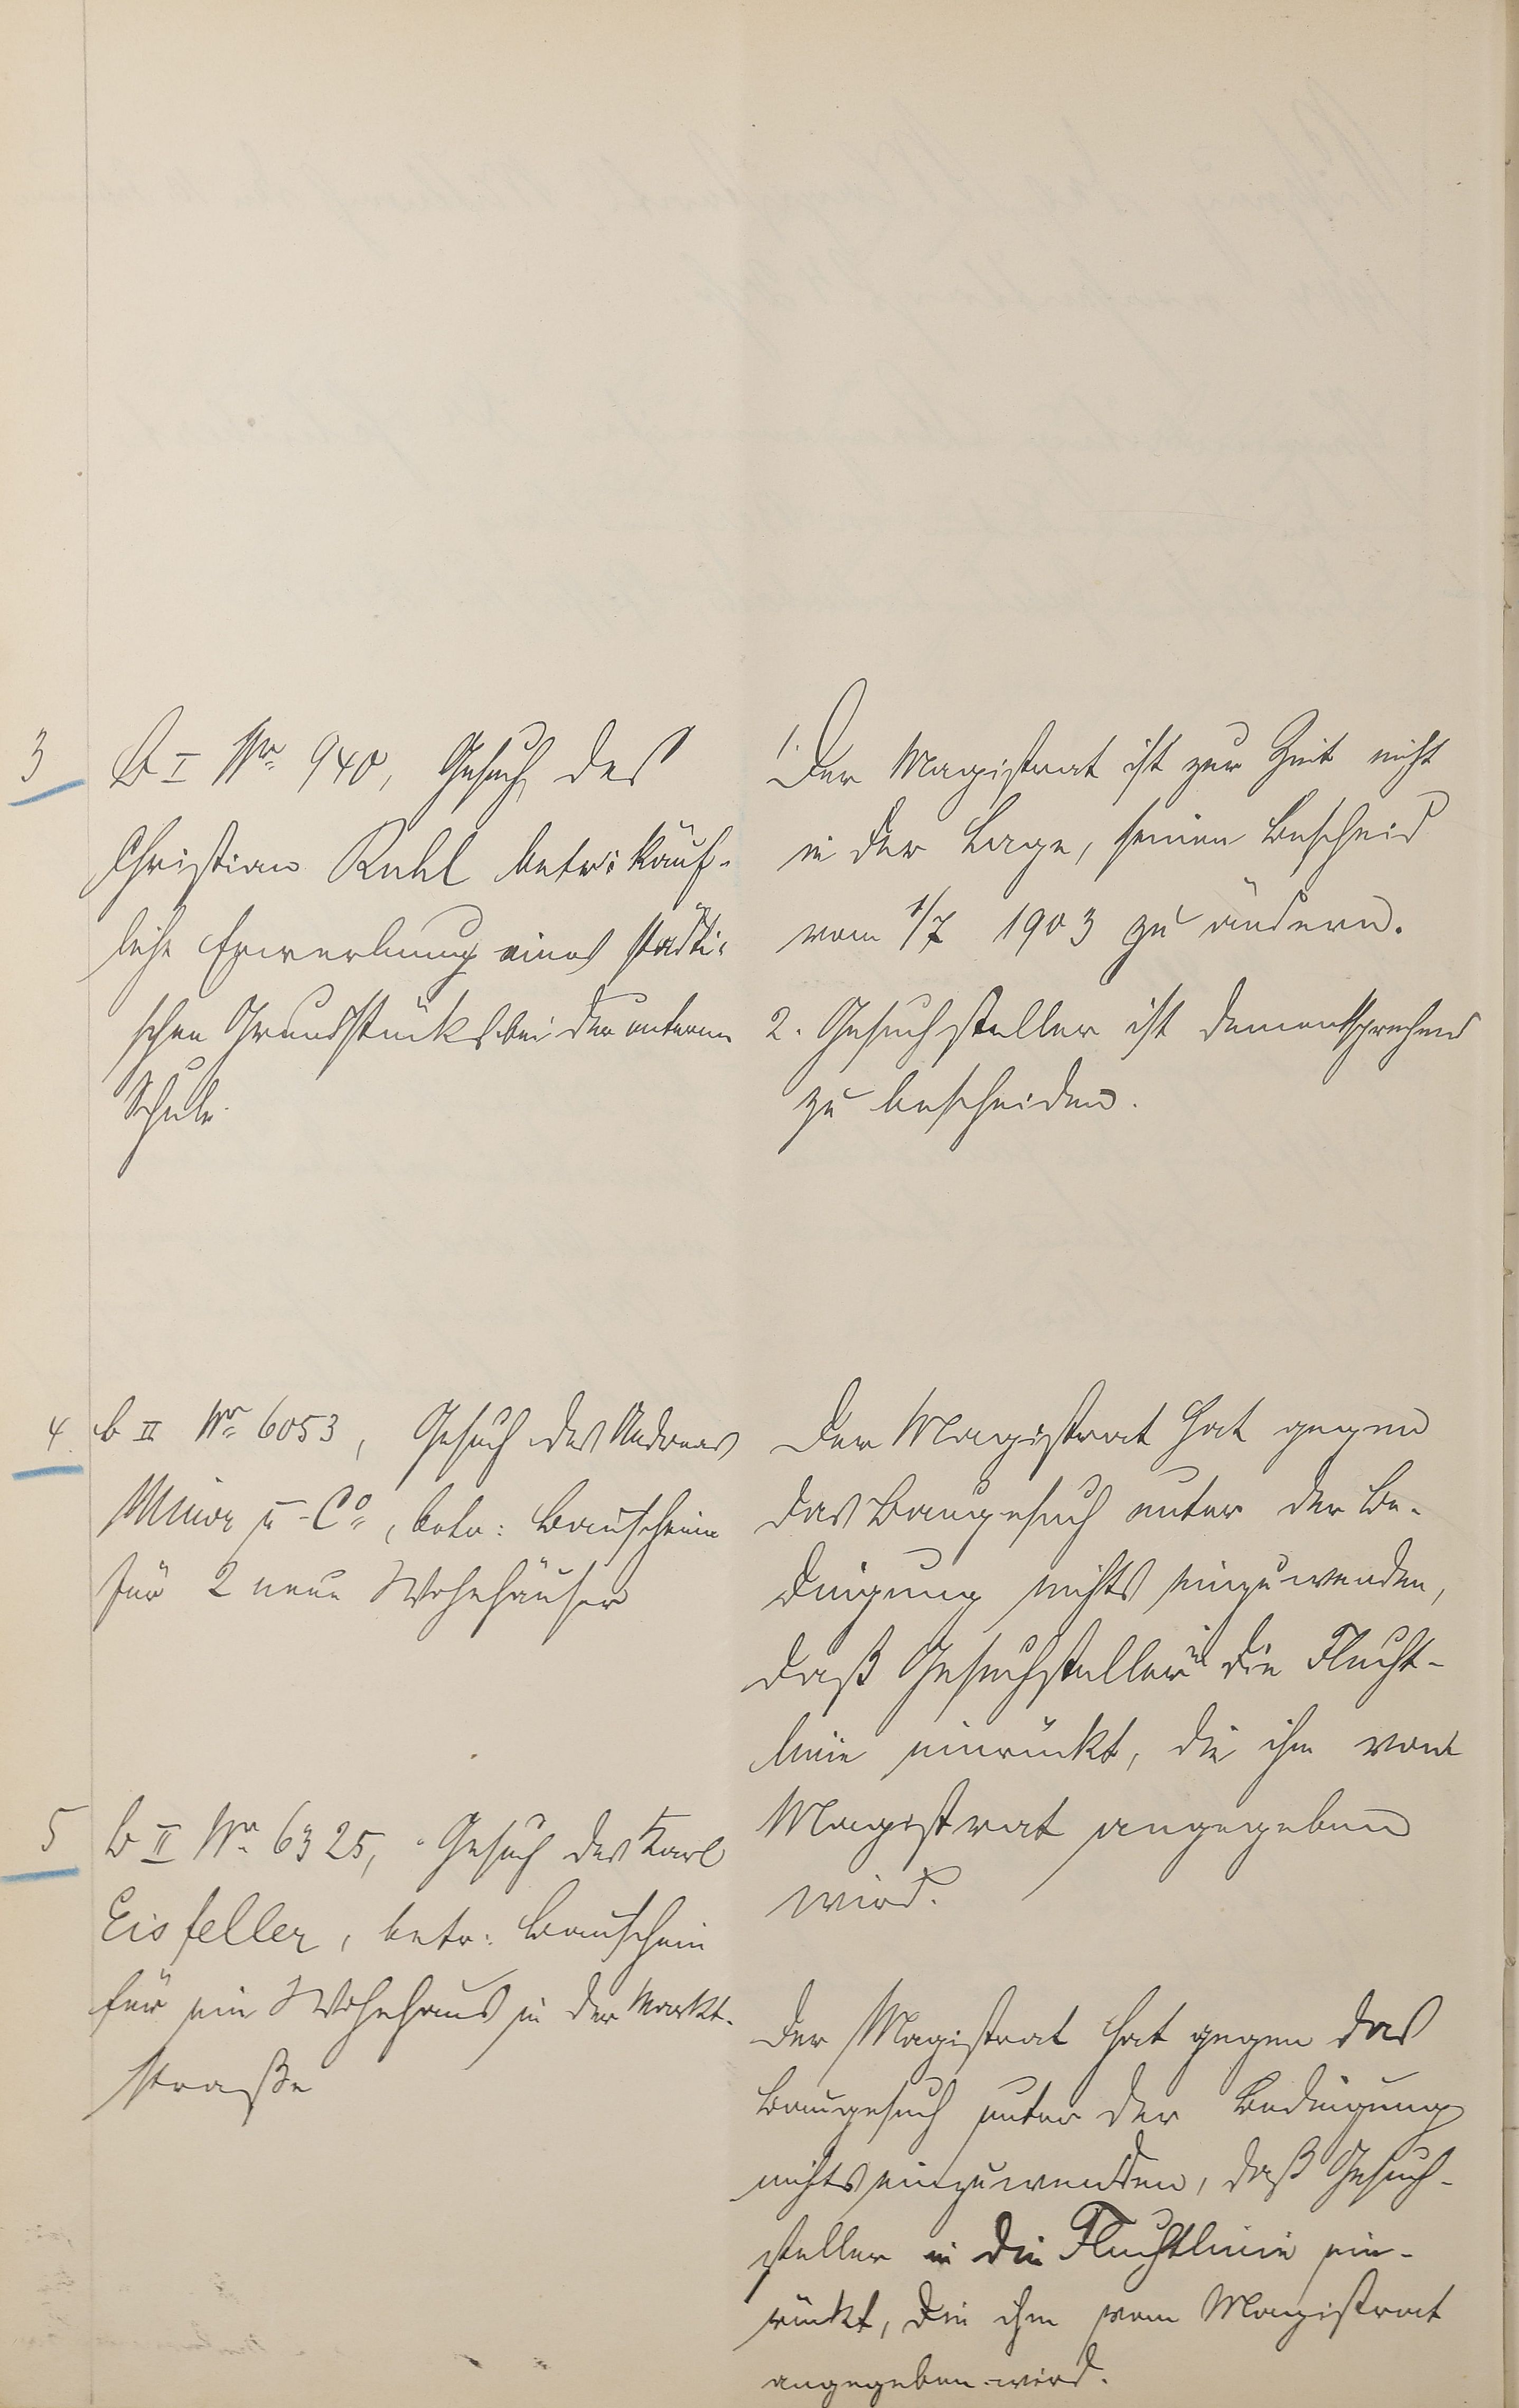 3
B I No 940, Gesuch des
Christian Ruhl betr: käuf-
liche Erwerbung eines städti-
schen Grundstücks bei der unteren
Schule.
1. Der Magistrat ist zur Zeit nicht
in der Lage, seinen Bescheid
vom 1/7 1903 zu ändern.
2. Gesuchsteller ist dementsprechend
zu bescheiden.
4.
b II No 6053, Gesuch des Andreas
Minor u. Co, betr: Bauschein
für 2 neue Wohnhäuser
Der Magistrat hat gegen
das Baugesuch unter der Be-
dingung nichts einzuwenden,
daß Gesuchsteller in die Flucht-
linie einrückt, die ihm vom
Magistrat angegeben
wird.
5
b II No 6325, Gesuch des Karl
Eisfeller, betr: Bauschein
für ein Wohnhaus in der Markt-
straße
Der Magistrat hat gegen das
Baugesuch unter der Bedingung
nichts einzuwenden, daß Gesuch-
steller in die Fluchtlinie ein-
rückt, die ihm vom Magistrat
angegeben wird.